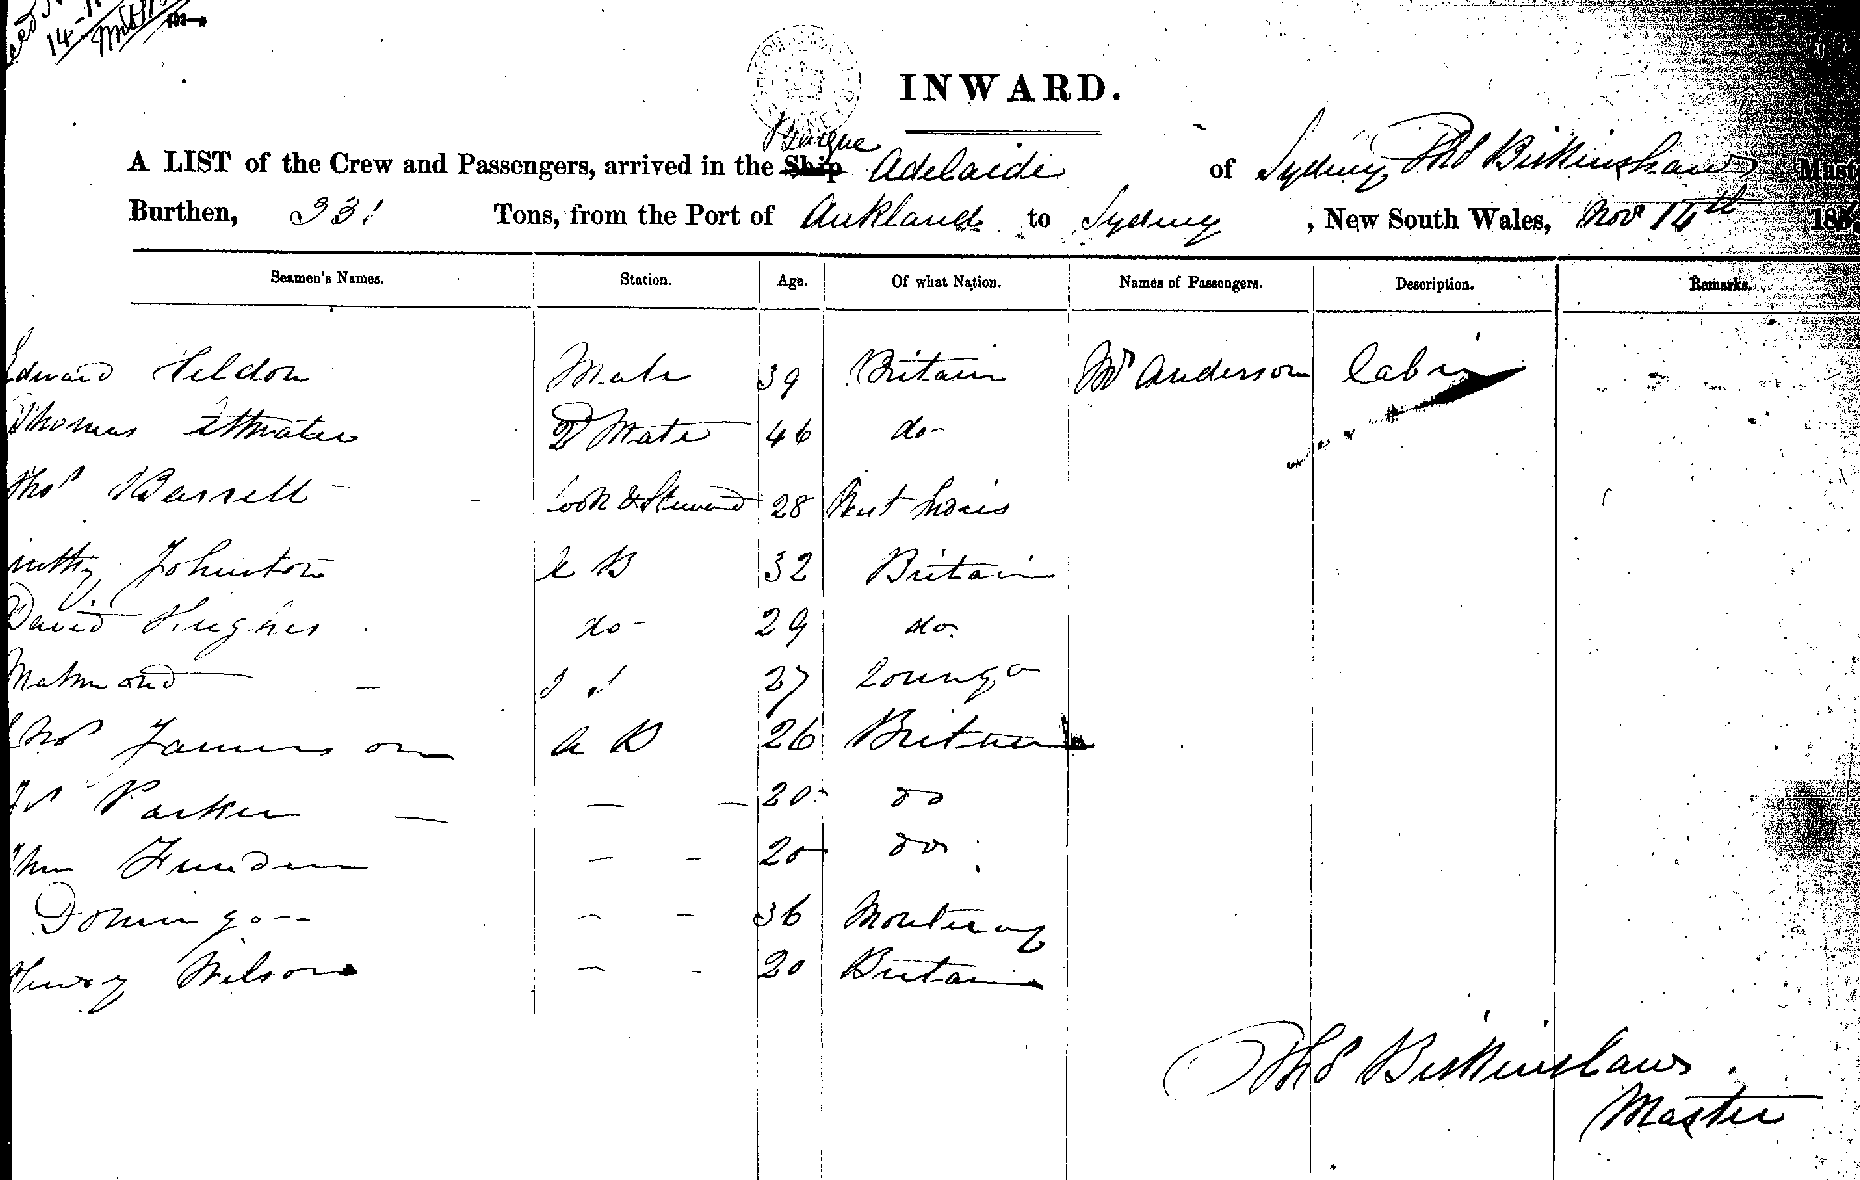 INWARD.
A LIST of the Crew and Passengers, arrived in the Ship Barque Adelaide of Sydney, Thos Birkinshaw
Burthen, 231 Tons, from the Port of Aukland to Sydney, New South Wales, Nov 14th
Seamen's Names. Station. Age. Of what Nation. Names of Passengers. Description. Remarks.
Edward Heldon Mate 39 Britain Mr Anderson Cabin
Thomas Attwater 2d Mate 46 do
Thos Barrett Cook & Steward 28 Port Louis
Johnston A B 32 Britain
David Hughes do 29 do
27
Thos Jameson A B 26 Britain
Parker 20 do
20 do
Domingo 36 Monterey
Henry Wilson 20 Britain
Thos Birkinshaw.
Master